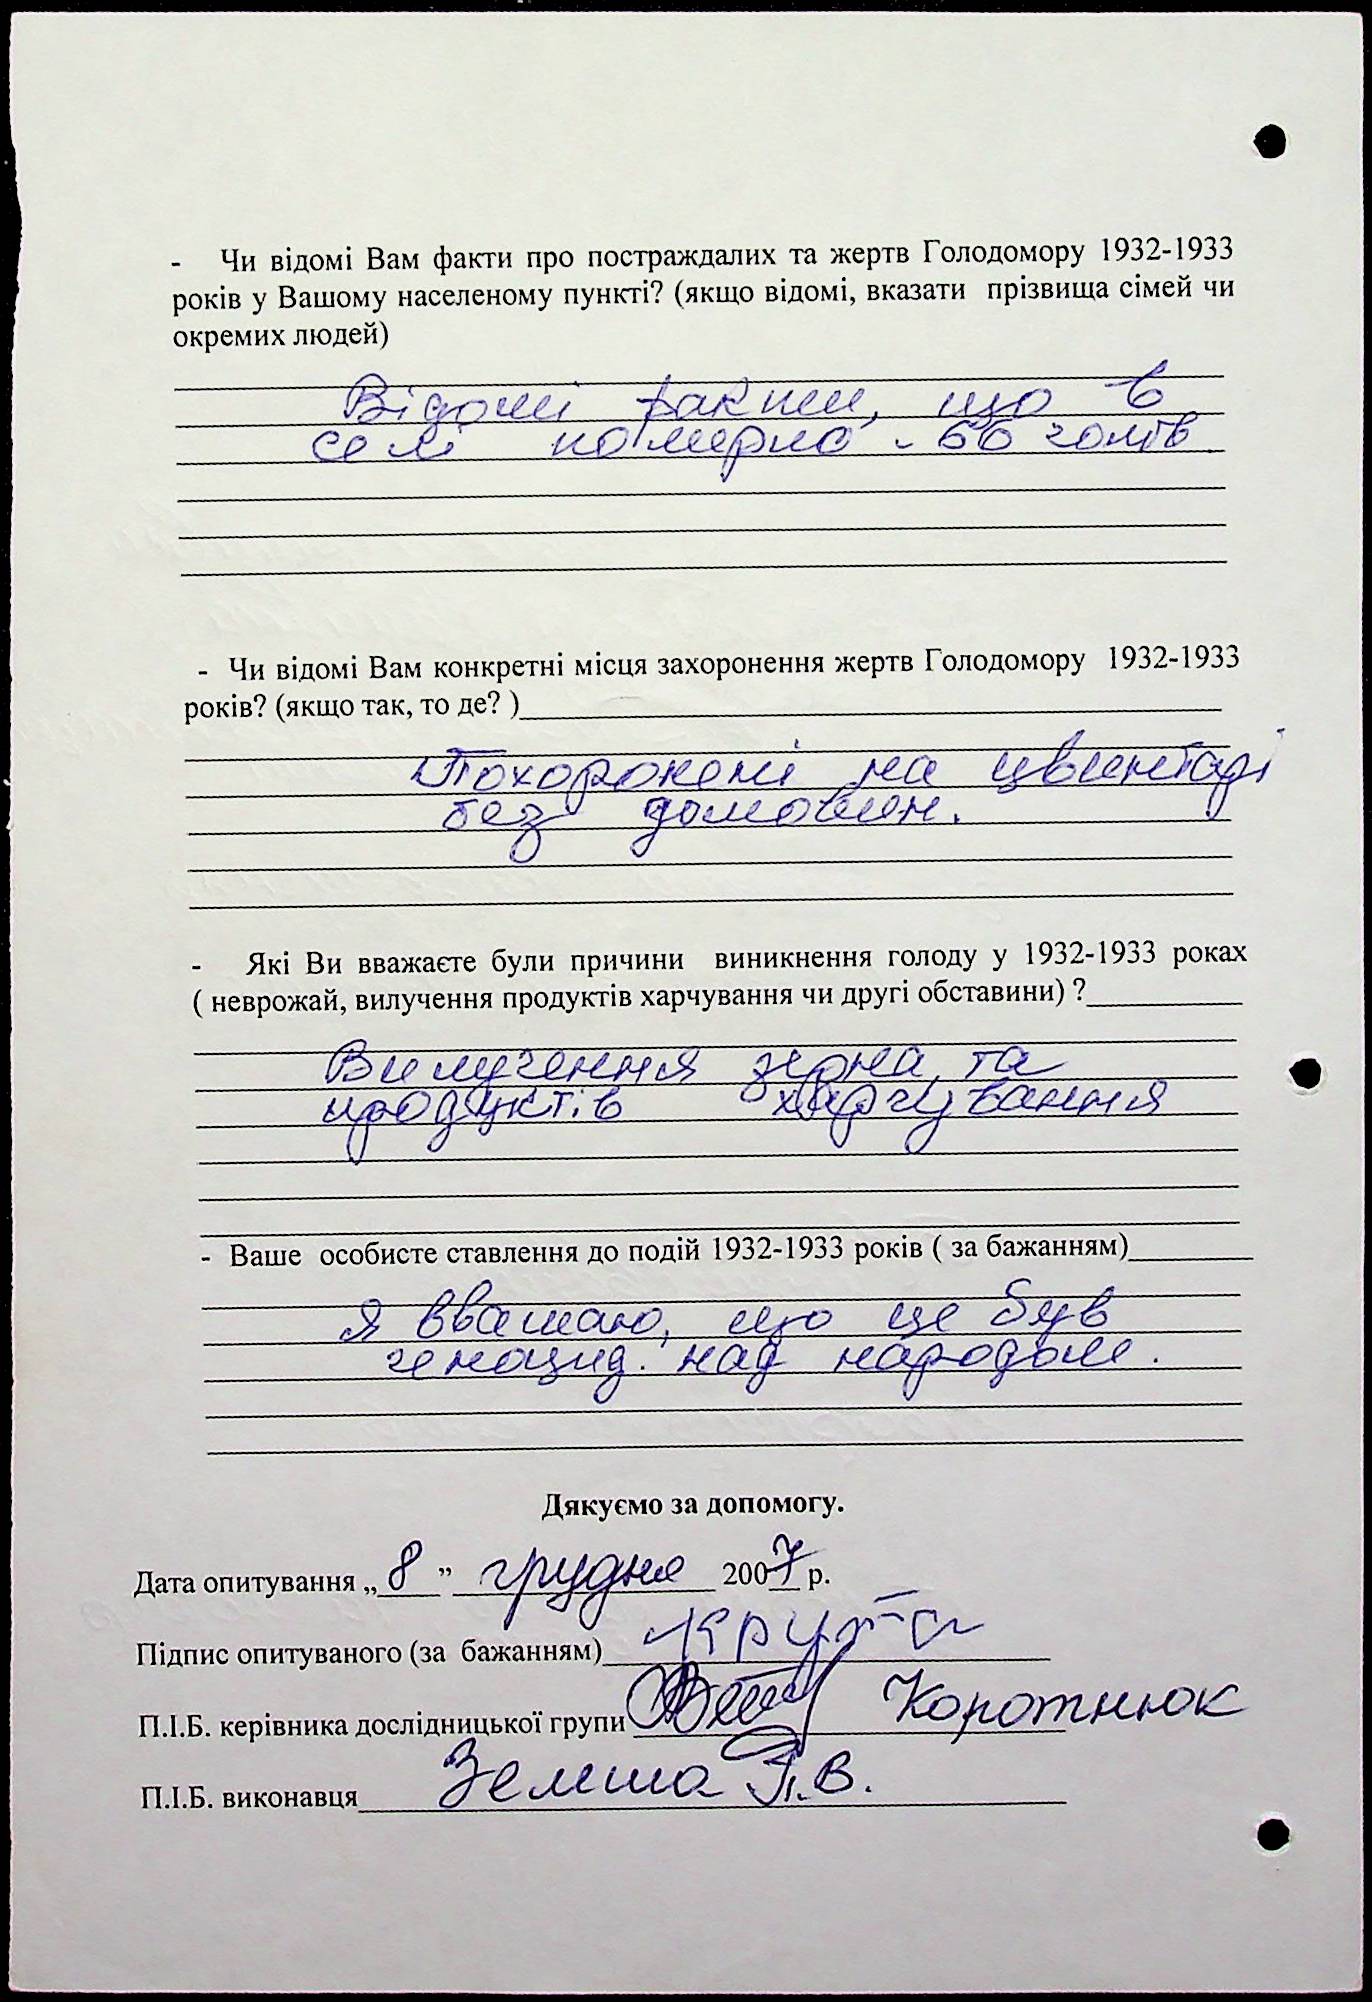 - Чи відомі Вам факти про постраждалих та жертв Голодомору 1932-1933
років у Вашому населеному пункті? (якщо відомі, вказати прізвища сімей чи
окремих людей)
Відомі факти, що в
селі померло - 60 голів
- Чи відомі Вам конкретні місця захоронення жертв Голодомору 1932-1933
років? (якщо так, то де? )
Похоронені на цвинтарі
без домовин.
- Які Ви вважаєте були причини виникнення голоду у 1932-1933 роках
( неврожай, вилучення продуктів харчування чи другі обставини) ?
Вилучення зерна, та
продуктів харчування
- Ваше особисте ставлення до подій 1932-1933 років ( за бажанням)
Я вважаю, що це був
геноцид над народом.
Дякуємо за допомогу.
Дата опитування „ 8 ” грудня 2007 р.
Підпис опитуваного (за бажанням) Крута
П.І.Б. керівника дослідницької групи Коротнюк
П.І.Б. виконавця Земша Г.В.